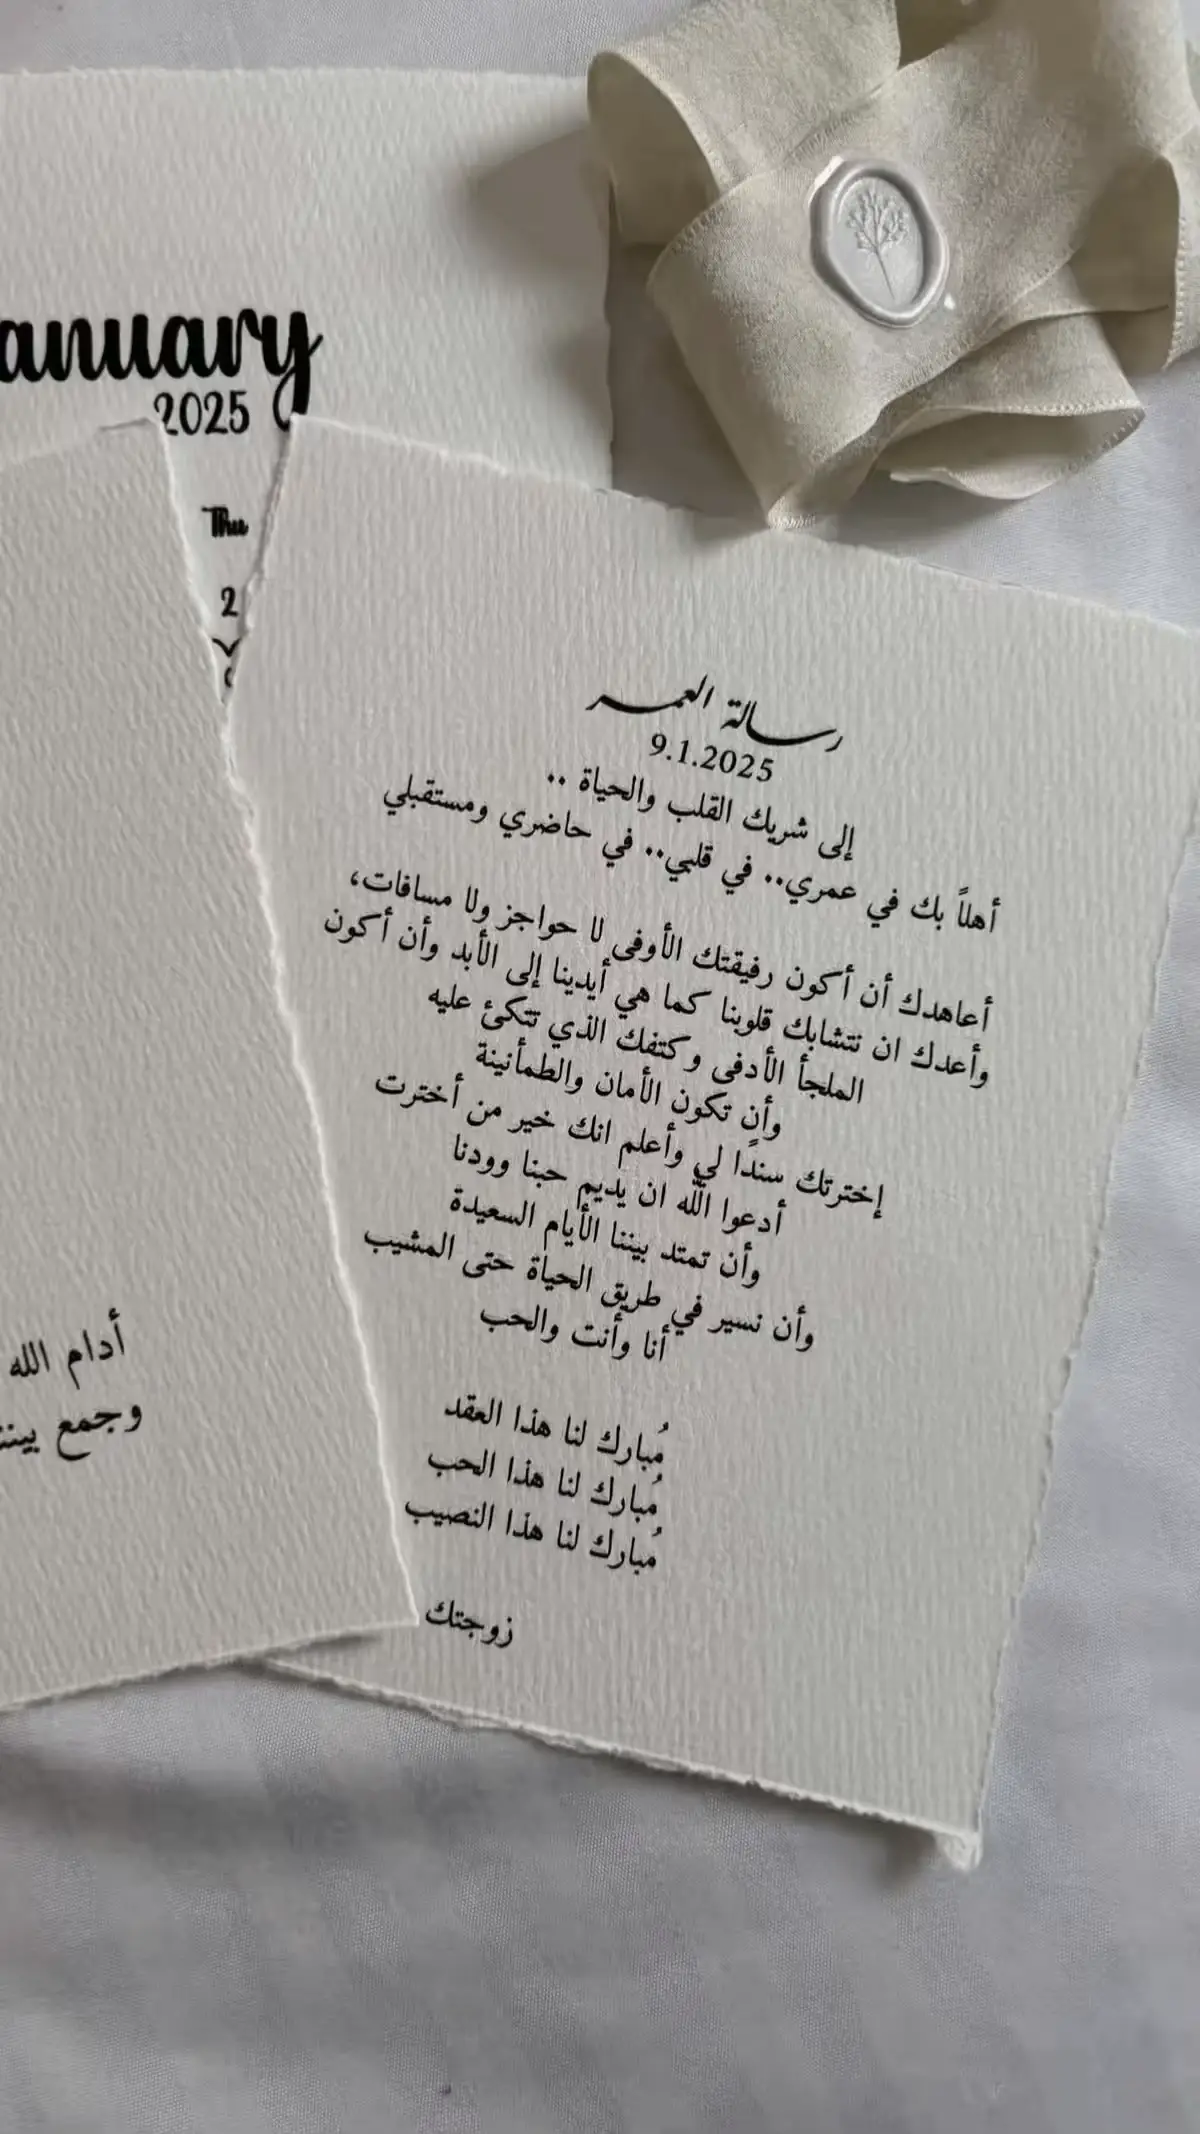 anuary
2025
Thu
2
رسالة العمر
9.1.2025
إلى شريك القلب والحياة ..
أهلاً بك في عمري.. في قلبي.. في حاضري ومستقبلي
أعاهدك أن أكون رفيقتك الأوفى لا حواجز ولا مسافات،
وأعدك ان نتشابك قلوبنا كما هي أيدينا إلى الأبد وأن أكون
الملجأ الأدفى وكتفك الذي تتكئ عليه
وأن تكون الأمان والطمأنينة
إخترتك سندًا لي وأعلم انك خير من أخترت
أدعوا الله ان يديم حبنا وودنا
وأن تمتد بيننا الأيام السعيدة
وأن نسير في طريق الحياة حتى المشيب
أنا وأنت والحب
مُبارك لنا هذا العقد
مُبارك لنا هذا الحب
مُبارك لنا هذا النصيب
زوجتك
أدام الله
وجمع